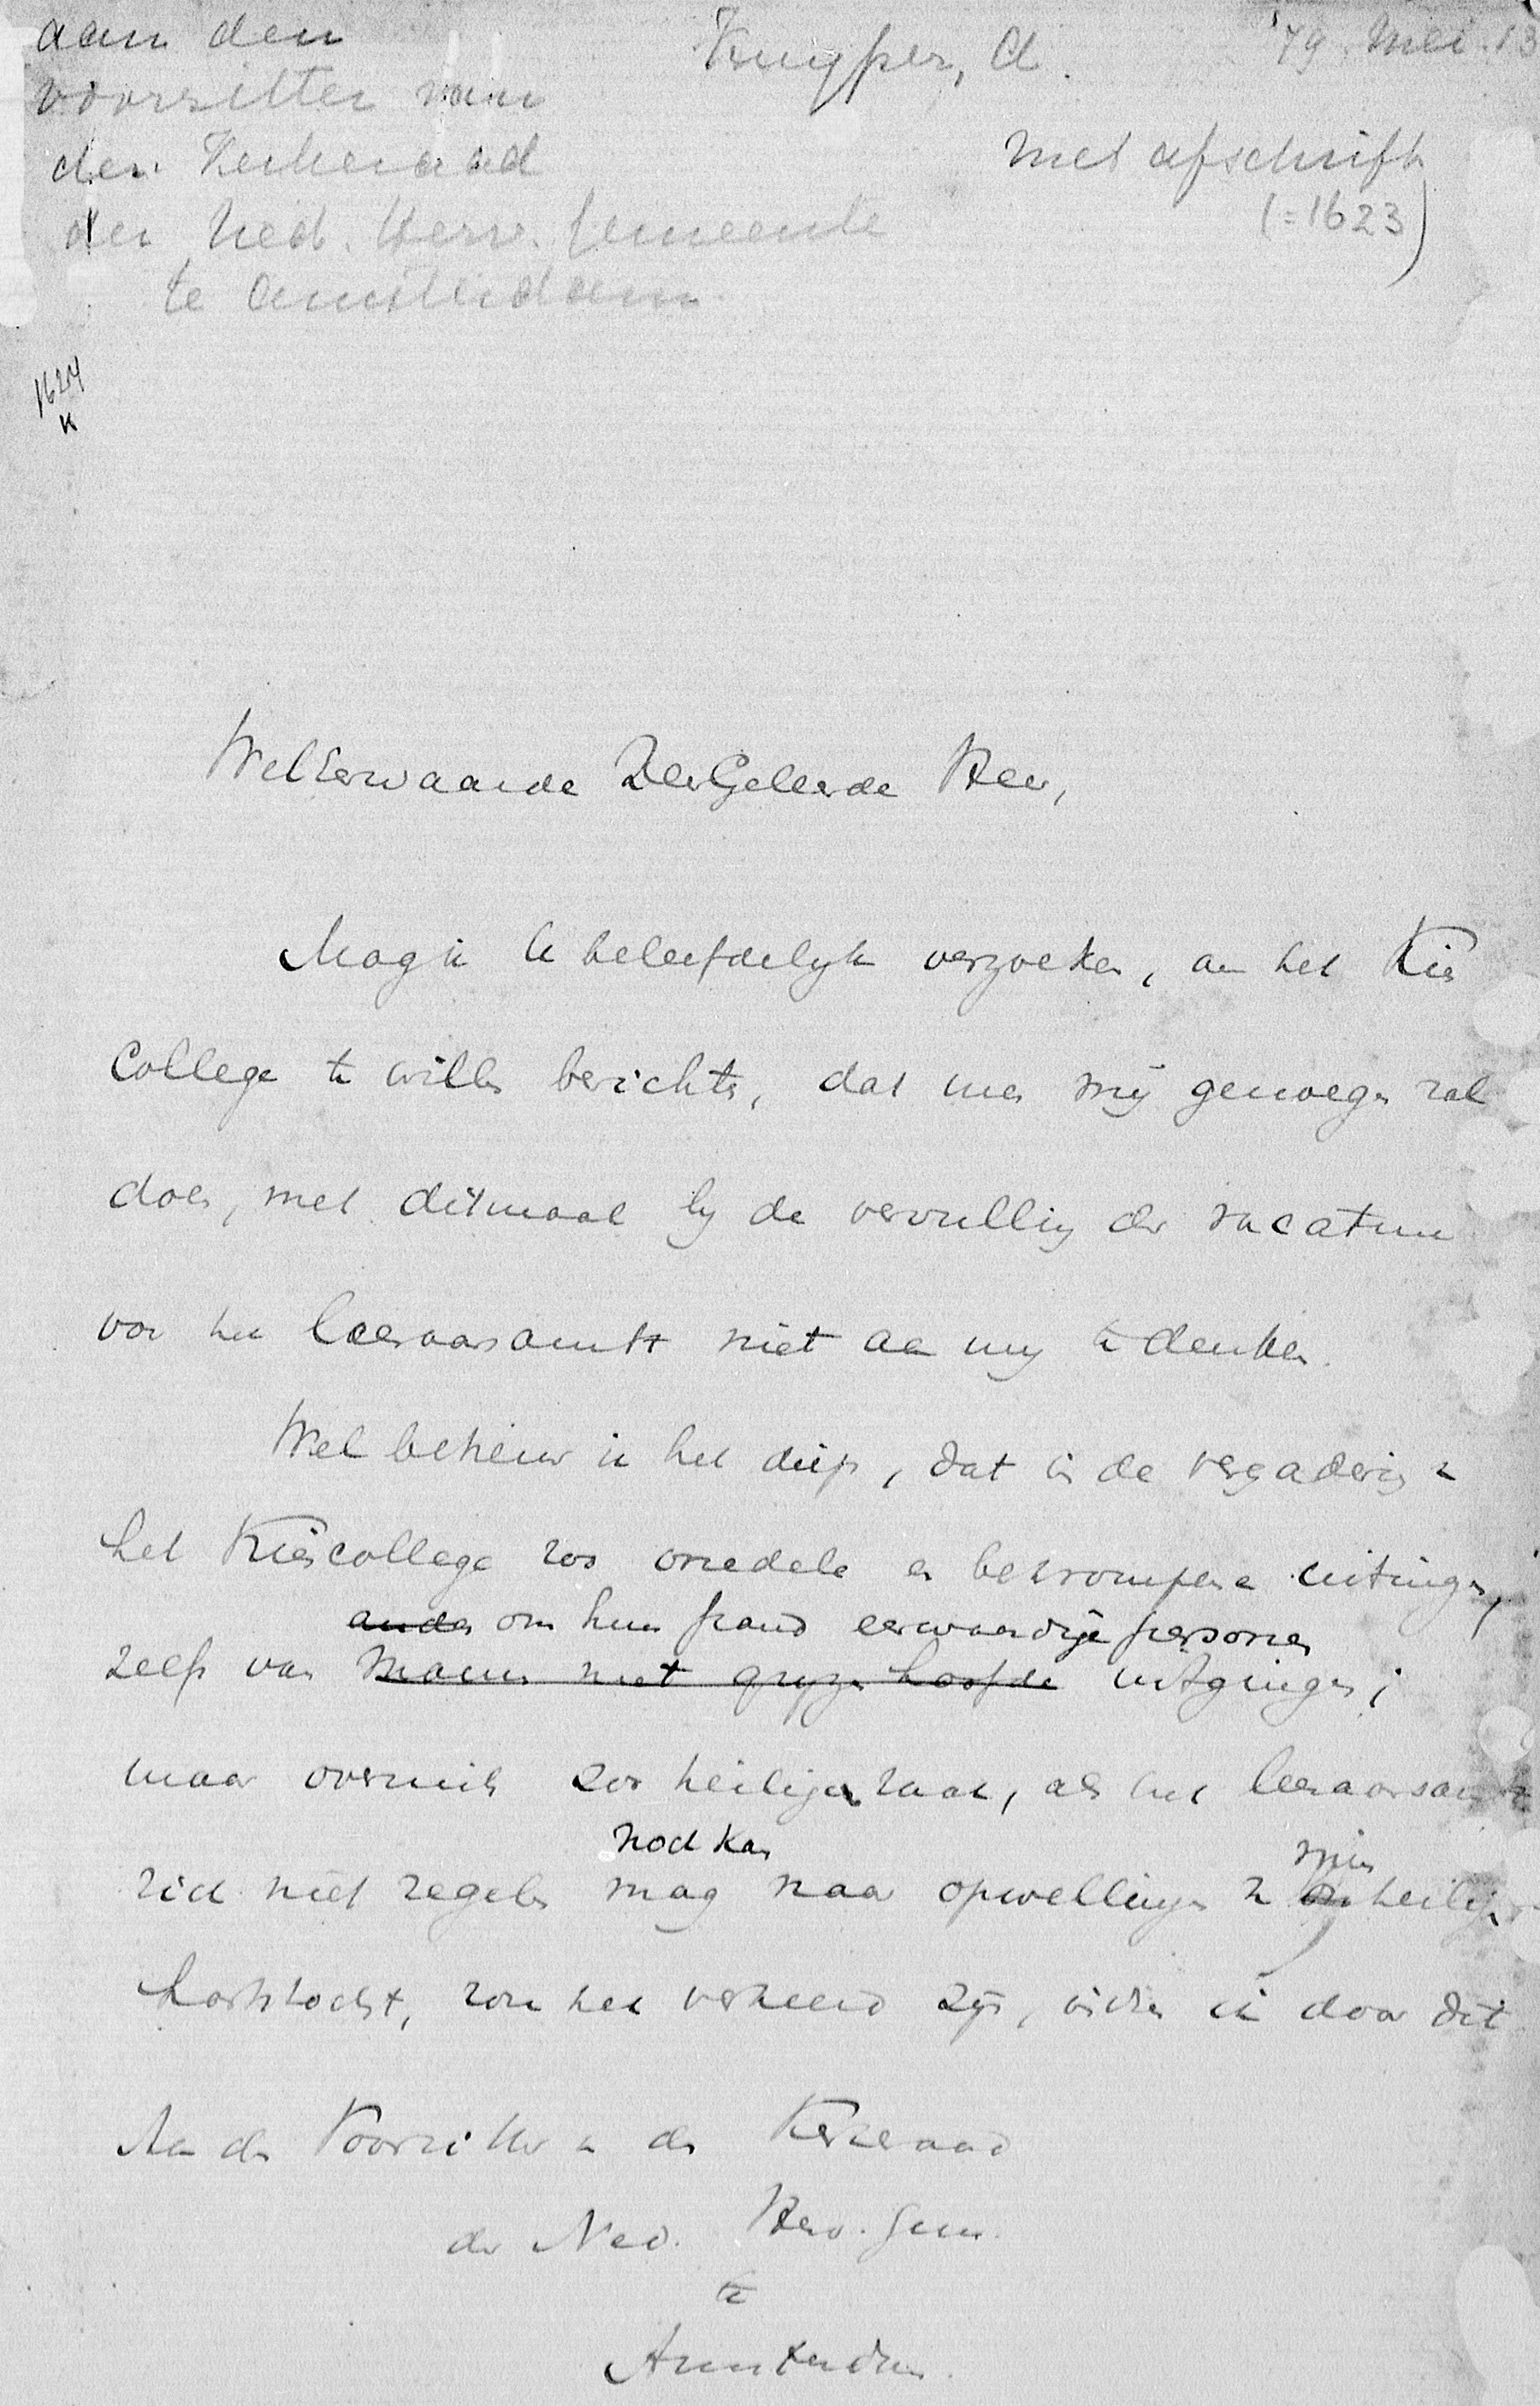 aan den
voorzitter van
den Kerkeraad
der Ned. Herv. Gemeente
te Amsterdam.
Kuyper, A.
'79. Mei. 13
met afschrift
(=1623)
1624
K
WelEerwaarde ZeerGeleerde Heer,
Mag ik U beleefdelijk verzoeken, aan het Kies
College te willen berichten, dat men mij genoegen zal
doen, met ditmaal bij de vervulling der vacature
voor het leeraarsambt niet aan mij te denken.
Wel betreur ik het diep, dat in de vergadering van
het Kiescollege zoo onedele en bekrompene uitingen,
om hun stand eerwaardige personen
zelfs van mannen met grijze hoofden uitgingen;
maar overmits zoo heilige zaak, als het leeraarsambt
noch kan
zich niet regelen mag naar opwellingen van onheilige
min
hartstocht, zou het verkeerd zijn, indien ik door dit
Aan den Voorzitter van den Kerkeraad
der Ned. Herv. Gem.
te
Amsterdam.